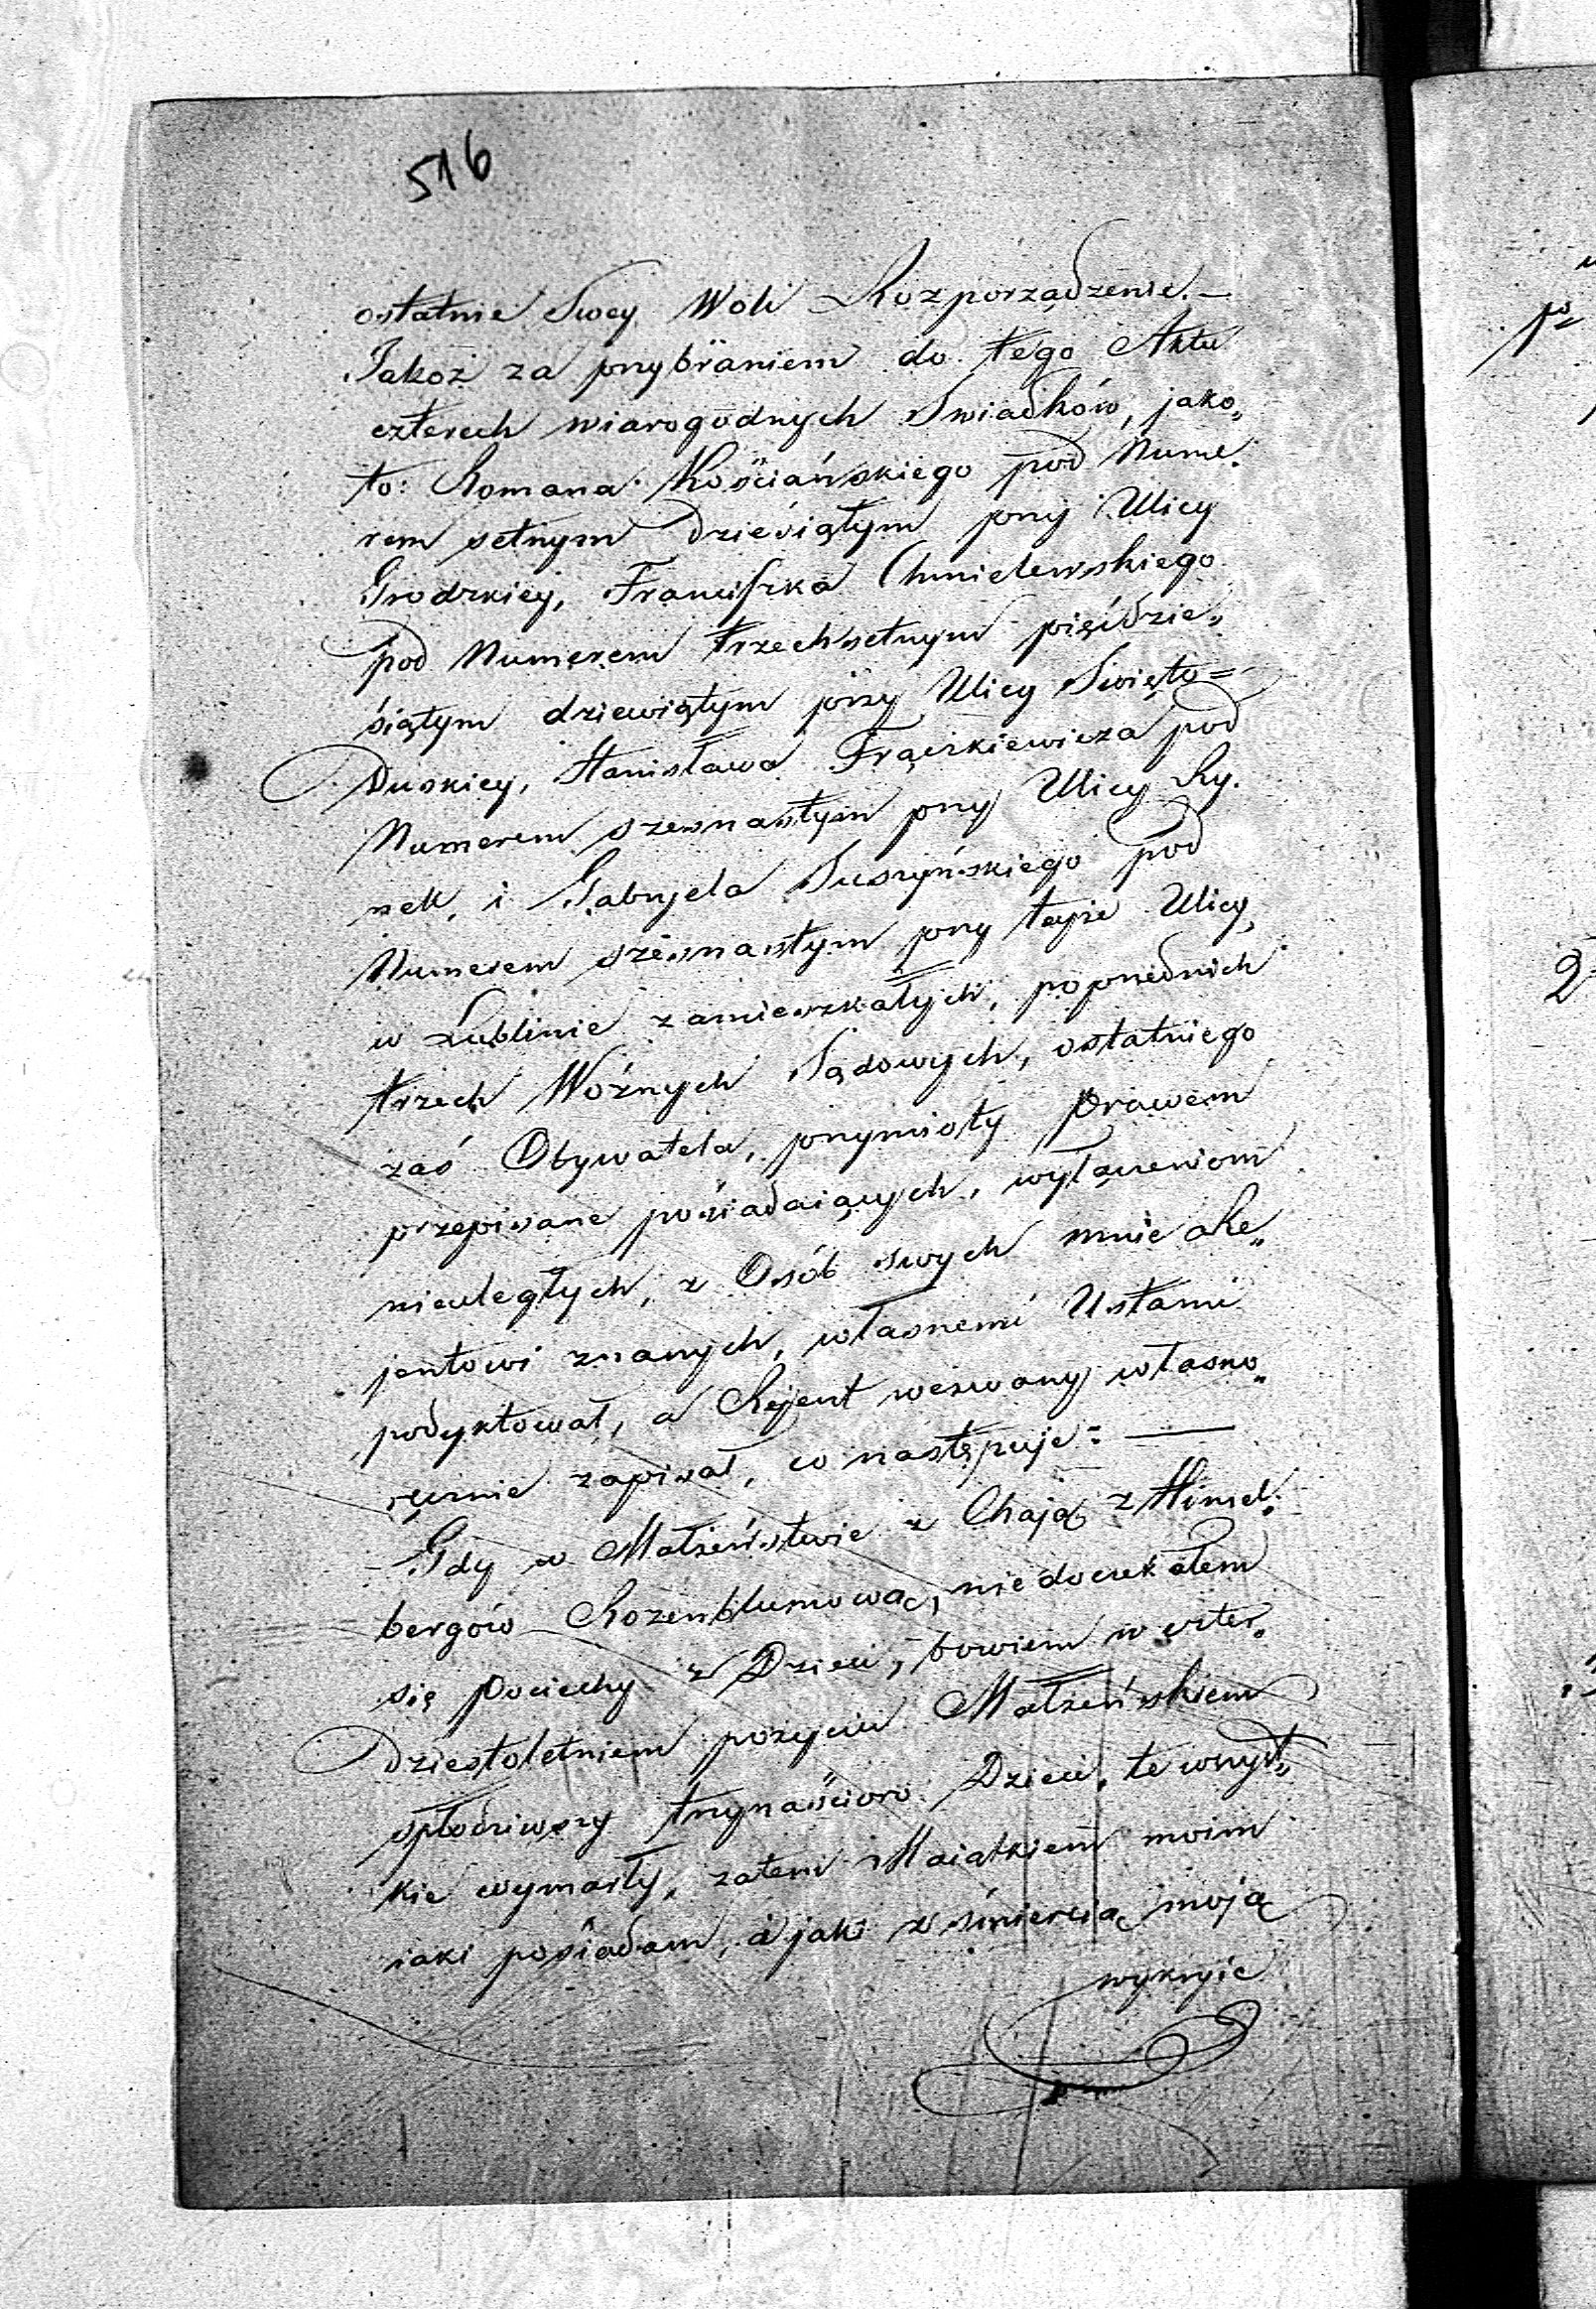 516
ostatnie Swey Woli Rozporządzenie. —
Jakoż za przybraniem do tego Aktu
czterech wiarogodnych Swiadków, jako„
to: Romana Kościańskiego pod Nume„
rem setnym dziesiątym przy Ulicy
Grodzkiey, Franciszka Chmielewskiego
pod Numerem trzechsetnym pięćdzie„
siątym dziewiątym przy Ulicy Święto=
Duskiey, Stanisława Frąckiewicza pod
Numerem szesnastym przy Ulicy Ry„
nek, i Gabryela Suszyńskiego pod
Numerem szesnastym przy teyże Ulicy,
w Lublinie zamieszkałych, poprzednich
trzech Woźnych Sądowych, ostatniego
zaś Obywatela, przymioty prawem
przepisane posiadaiących, wyłączeniom
nieuległych, z Osób swych mnie Re„
jentowi znanych, własnemi Ustami
podyktował, a Rejent wezwany własno„
ręcznie zapisał, co następuje: —
Gdy w Małżeństwie z Chają z Himel„
bergów Rozenblumową, nie doczekałem
się pociechy z Dzieci, bowiem w czter„
dziestoletniem pożyciu Małżeńskiem
spłodziwszy trzynaścioro Dzieci, te wszyst„
kie wymarły, zatem Maiątkiem moim
iaki posiadam, a jaki z śmiercią moją
wykryie
2